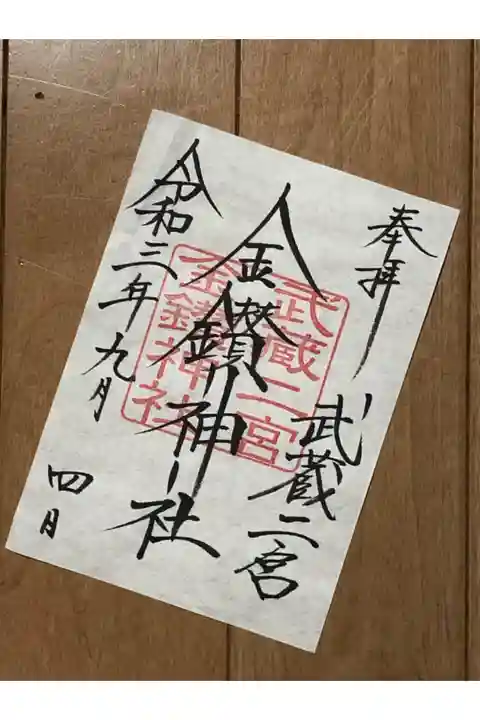 奉拝
武蔵二宮
金鑚神社
令和三年九月
四日
武蔵二宮
金鑚神社